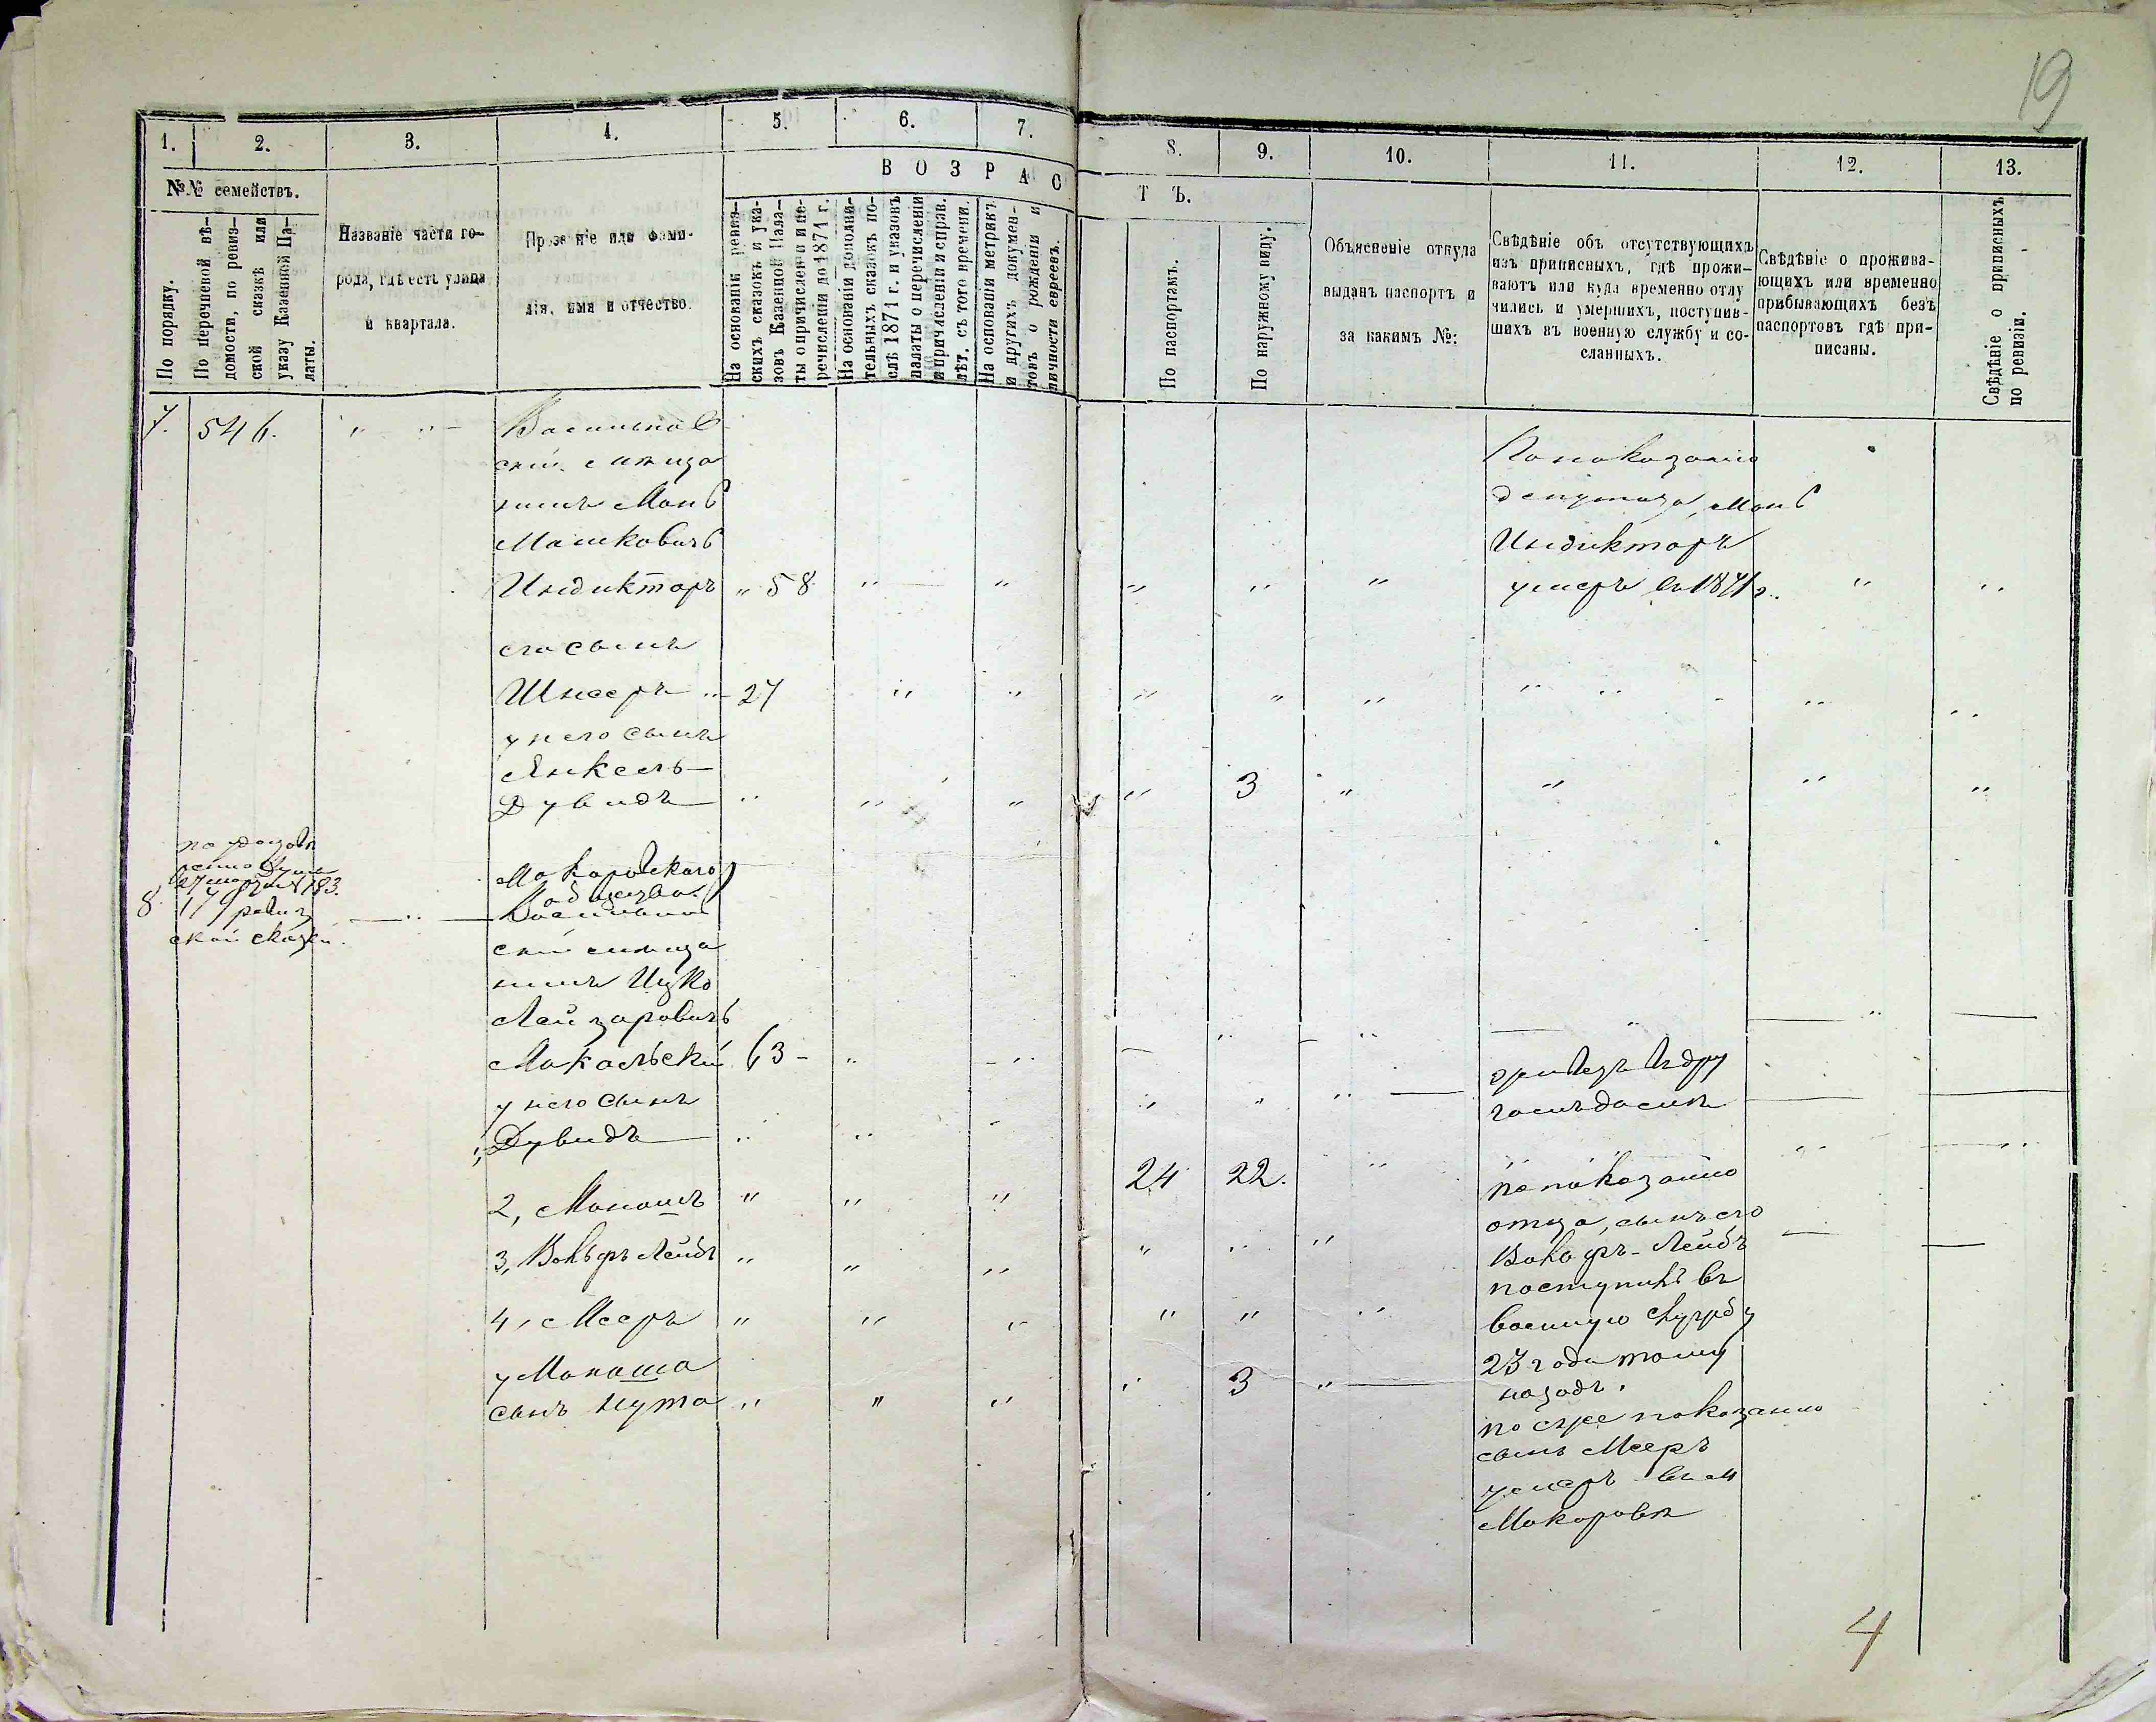 19
1.
2.
3.
4.
5.
6.
7.
8.
9.
10.
11.
12.
13.
№№ семействъ.
ВОЗРАС
ТЪ.
По порядку.
По перечневой вѣ-
домости, по ревиз-
ской сказкѣ или
указу Казенной Па-
латы.
Названіе части го-
рода, гдѣ есть улица
и квартала.
Прозваніе или фами-
лія, имя и отчество.
На основаніи ревиз-
скихъ сказокъ и ука-
зовъ Казенной Пала-
ты о причисленіи и пе-
речисленіи до 1871 г.
На основаніи дополни-
тельныхъ сказокъ по-
слѣ 1871 г. и указовъ
палаты о перечисленіи
и причисленіи и справ.
лѣт. съ того времени.
На основаніи метрикъ
и другихъ докумен-
товъ о рожденіи и
личности евреевъ.
По паспортамъ.
По наружному виду.
Объясненіе откуда
выданъ паспортъ и
за какимъ №:
Свѣдѣніе объ отсутствующихъ
изъ приписныхъ, гдѣ прожи-
ваютъ или куда временно отлу
чились и умершихъ, поступив-
шихъ въ военную службу и со-
сланныхъ.
Свѣдѣніе о прожива-
ющихъ или временно
прибывающихъ безъ
паспортовъ гдѣ при-
писаны.
Свѣдѣніе о приписныхъ
по ревизіи.
7. 546. " " Васильков
скій мѣща
нинъ Мань
Машковичъ
Индикторъ " 58 " " " " "
По показанію
депутата, Мань
Индикторъ
умеръ въ 1871 г. " "
его сынъ
Шнееръ " 27 " " " " " " " " "
у него сынъ
Янкель-
Дувидъ " " " " 3 " " " "
8 179 ревиз
ской сказки.
Макаровскаго
общества.
Васильков
скій мѣща
нинъ Ицко
Лейзаровичъ
Макальскій 63 - " " " "
у него сынъ
1, Дувидъ " " " " " "
2, Манашъ " " " 24 22. "
3, Вольфъ Лейбъ " " " " " "
4, Мееръ " " " " " "
у Манаша
сынъ Нута " " " " 3 "
по показанію
отца, сынъ его
Вольфъ-Лейбъ
поступилъ въ
военную службу
23 года тому
назадъ.
по его же показанію
сынъ Мееръ
умеръ въ м
Макаровѣ
4